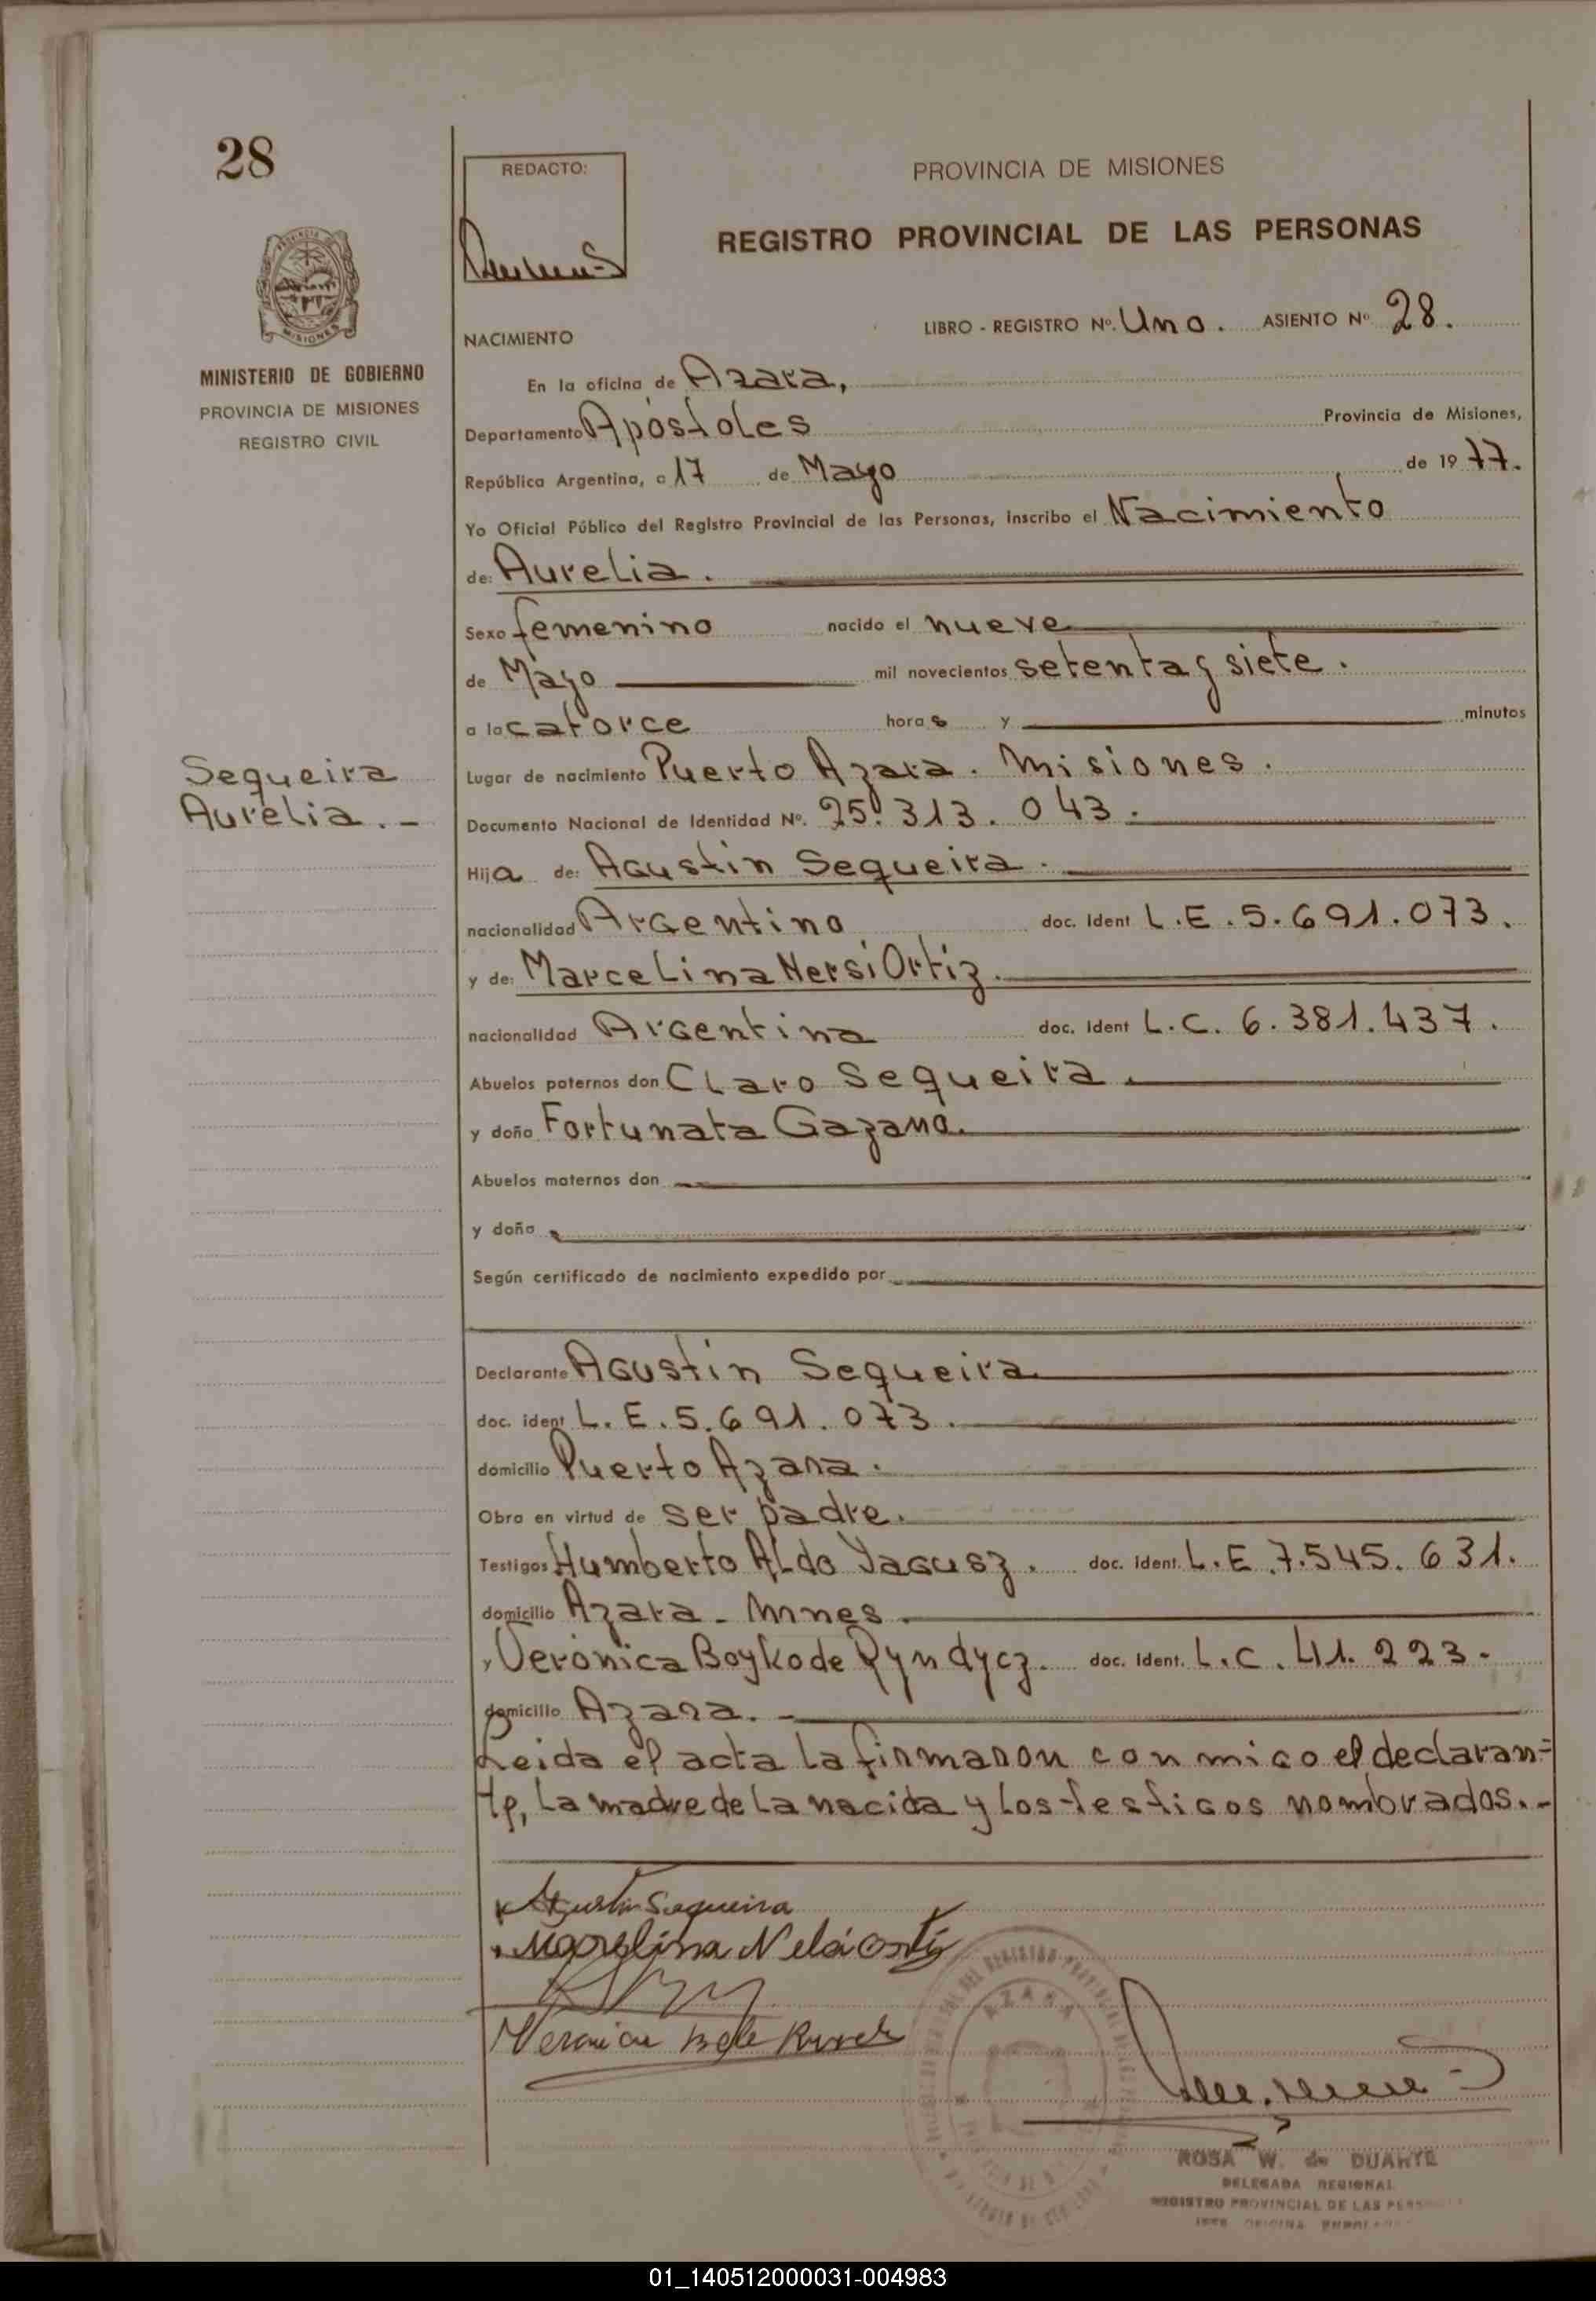 28
REDACTO:
PROVINCIA DE MISIONES
REGISTRO PROVINCIAL DE LAS PERSONAS
MISIONES
MINISTERIO DE GOBIERNO
PROVINCIA DE MISIONES
REGISTRO CIVIL
NACIMIENTO
LIBRO - REGISTRO Nº. Uno. ASIENTO Nº 28.
En la oficina de Azara,
Departamento Apóstoles Provincia de Misiones,
República Argentina, a 17 de Mayo de 1977.
Yo Oficial Público del Registro Provincial de las Personas, inscribo el Nacimiento
de: Aurelia.
Sexo femenino nacido el nueve
de Mayo mil novecientos setenta y siete.
a la catorce horas y minutos
Sequeira
Aurelia.-
Lugar de nacimiento Puerto Azara. Misiones.
Documento Nacional de Identidad Nº. 25.313.043.
Hija de: Agustin Sequeira.
nacionalidad Argentino doc. Ident L.E.5.691.073.
y de: Marcelina Nersi Ortiz.
nacionalidad Argentina doc. Ident L.C. 6.381.437.
Abuelos paternos don Claro Sequeira.
y doña Fortunata Gazano.
Abuelos maternos don
y doña
Según certificado de nacimiento expedido por
Declarante Agustin Sequeira
doc. ident. L.E.5.691.073.
domicilio Puerto Azara.
Obra en virtud de ser padre.
Testigos Humberto Aldo Yagusz. doc. ident. L.E.7.545.631.
domicilio Azara - Mnnes.
y Verónica Boyko de Ryndycz. doc. Ident. L.C. 41.223.
domicilio Azara.-
Leida el acta la firmaron conmigo el declaran=
te, la madre de la nacida y los testigos nombrados.-
Agustin Sequeira
AZARA
ROSA W. de DUARTE
DELEGADA REGIONAL
REGISTRO PROVINCIAL DE LAS PERSONAS
01_140512000031-004983